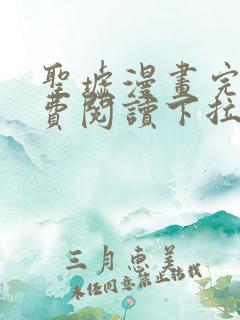 聖墟漫畫完
費閱讀下拉
三月惠美
未經同意禁止轉載